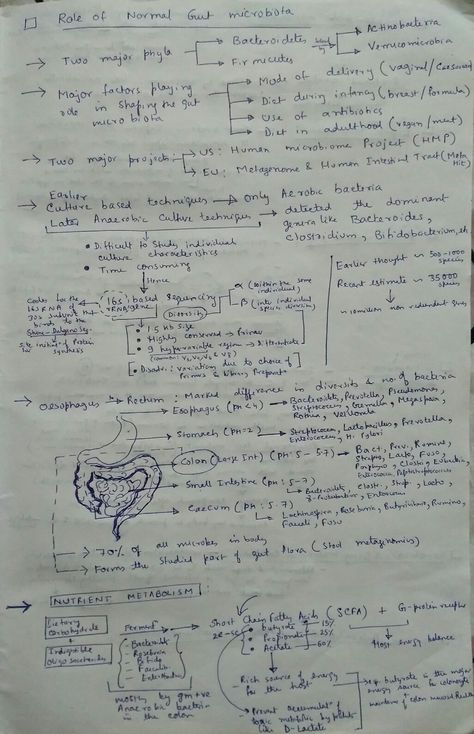 Role of Normal Gut microbiota
→ Two major phyla → Bacteroidetes → Actinobacteria
→ Verrucomicrobia
→ Firmicutes
→ Major factors playing role in shaping the gut microbiota
→ Mode of delivery (vaginal/Caesarean)
→ Diet during infancy (breast/formula)
→ Use of antibiotics
→ Diet in adulthood (vegan/meat)
→ Two major projects → US: Human microbiome Project (HMP)
→ EU: Metagenome & Human Intestinal Tract (Meta Hit)
→ Earlier
Culture based techniques → only Aerobic bacteria
Later Anaerobic Culture techniques → detected the dominant
genera like Bacteroides,
Clostridium, Bifidobacterium, etc
• Difficult to study individual
culture characteristics
• Time consuming
Hence
Codes for the
16s rRNA of
30s subunit that
binds to the
Shine-Dalgarno Seq.
16s rRNA gene based sequencing
Diversity
α (within the same individual)
β (inter individual species diversity)
• 1.5 kb size
• Highly conserved → Primer
• 9 hypervariable region → Differentiate
• Disadv.: Variations due to choice of
Primers & Library Preparatn
Earlier thought ~ 500-1000
species
Recent estimate ~ 35000
species
~ 10 million non redundant genes
→ Oesophagus → Rectum: Marked difference in diversity & no. of bacteria
→ Esophagus (pH <4) → Bacteroidets, Prevotella, Pseudomonas,
Streptococcus, Gemella, Megaspaera,
Rothia, Veillonella
→ Stomach (pH=2) → Streptococcus, Lactobacillus, Prevotella,
Enterococcus, H. Pylori
→ Colon (Large Int) (pH: 5-5.7) → Bact, Prev, Rumino,
→ Small Intestine (pH: 5-7)
→ Caecum (pH: 5.7)
→ Lachnospira, Roseburia, Butyrivibrio, Rumino,
Faecali, Fuso
→ 70% of all microbes in body
→ Forms the studied part of gut flora (stool metagenomics)
→ NUTRIENT METABOLISM:
Dietary
Carbohydrate
+
Indigestible
Oligosaccharides
Ferment
- Bacteroids
- Roseburia
- Bifido
- Faecalis
- Enterobacter
mostly by gm +ve
Anaerobic bacteria
in the colon
Short Chain Fatty Acids (SCFA) + G-protein receptor
• Butyrate → 15%
• Propionate → 25%
• Acetate → 60%
Host energy balance
- Rich source of energy
for the host
- Prevent accumulatn of
toxic metabolic by products
like D-Lactate
butyrate is the major
energy source for colonocyte